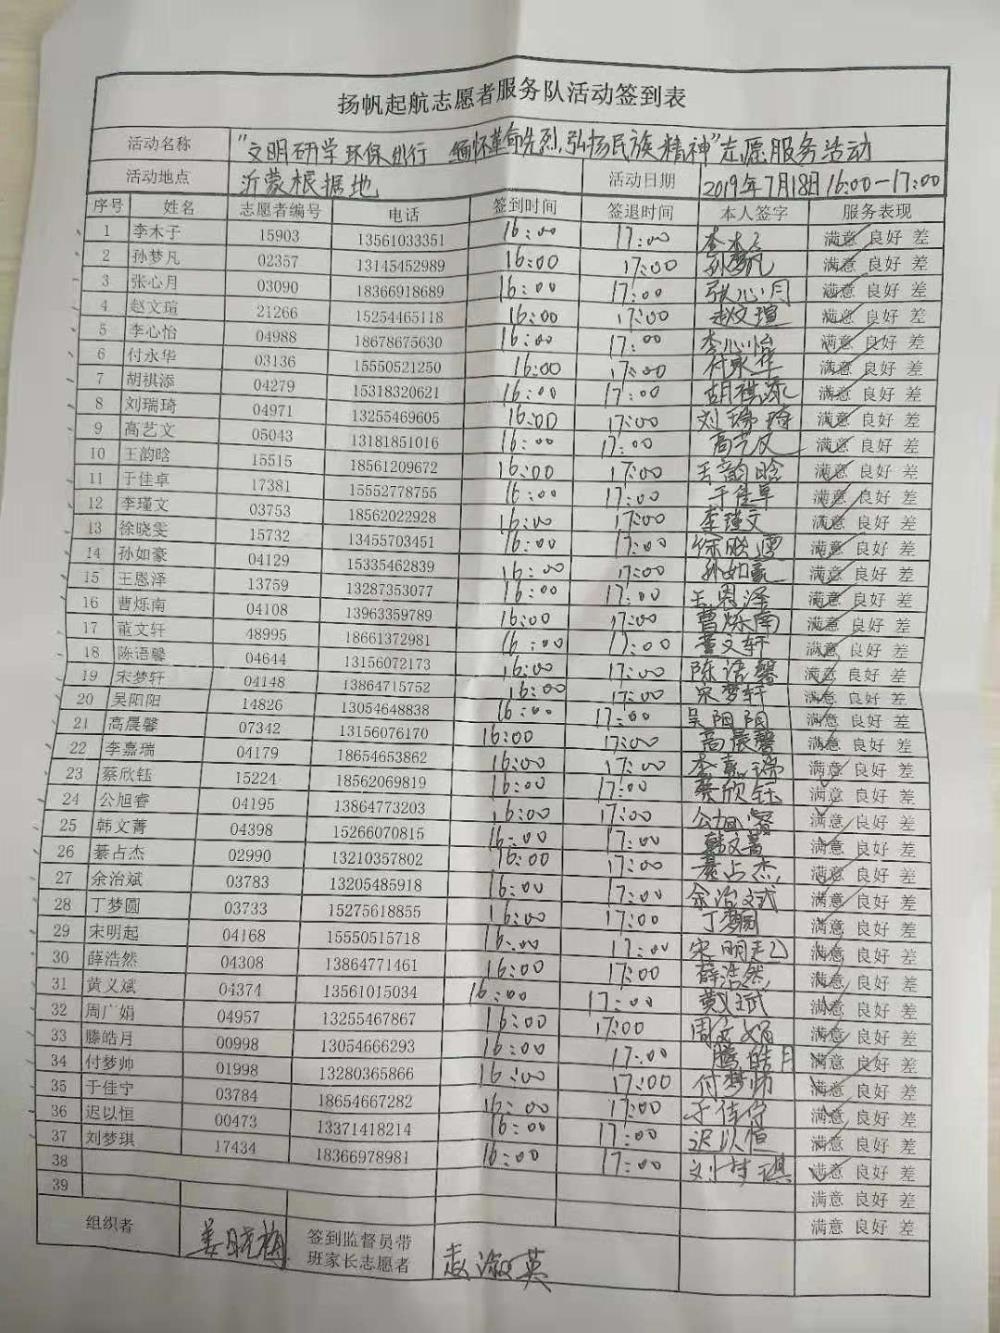 扬帆起航志愿者服务队活动签到表
活动名称 "文明研学 环保出行 缅怀革命先烈,弘扬民族精神"志愿服务活动
活动地点 沂蒙根据地 活动日期 2019年7月18日16:00-17:00
序号 姓名 志愿者编号 电话 签到时间 签退时间 本人签字 服务表现
1 李木子 15903 13561033351 16:00 17:00 李木子 满意 良好 差
2 孙梦凡 02357 13145452989 16:00 17:00 孙梦凡 满意 良好 差
3 张心月 03090 18366918689 16:00 17:00 张心月 满意 良好 差
4 赵文瑄 21266 15254465118 16:00 17:00 赵文瑄 满意 良好 差
5 李心怡 04988 18678675630 16:00 17:00 李心怡 满意 良好 差
6 付永华 03136 15550521250 16:00 17:00 付永华 满意 良好 差
7 胡祺添 04279 15318320621 16:00 17:00 胡祺添 满意 良好 差
8 刘瑞琦 04971 13255469605 16:00 17:00 刘瑞琦 满意 良好 差
9 高艺文 05043 13181851016 16:00 17:00 高艺文 满意 良好 差
10 王韵晗 15515 18561209672 16:00 17:00 王韵晗 满意 良好 差
11 于佳卓 17381 15552778755 16:00 17:00 于佳卓 满意 良好 差
12 李瑾文 03753 18562022928 16:00 17:00 李瑾文 满意 良好 差
13 徐晓雯 15732 13455703451 16:00 17:00 徐晓雯 满意 良好 差
14 孙如豪 04129 15335462839 16:00 17:00 孙如豪 满意 良好 差
15 王恩泽 13759 13287353077 16:00 17:00 王恩泽 满意 良好 差
16 曹烁南 04108 13963359789 16:00 17:00 曹烁南 满意 良好 差
17 董文轩 48995 18661372981 16:00 17:00 董文轩 满意 良好 差
18 陈语馨 04644 13156072173 16:00 17:00 陈语馨 满意 良好 差
19 宋梦轩 04148 13864715752 16:00 17:00 宋梦轩 满意 良好 差
20 吴阳阳 14826 13054648838 16:00 17:00 吴阳阳 满意 良好 差
21 高晨馨 07342 13156076170 16:00 17:00 高晨馨 满意 良好 差
22 李嘉瑞 04179 18654653862 16:00 17:00 李嘉瑞 满意 良好 差
23 蔡欣钰 15224 18562069819 16:00 17:00 蔡欣钰 满意 良好 差
24 公旭睿 04195 13864773203 16:00 17:00 公旭睿 满意 良好 差
25 韩文菁 04398 15266070815 16:00 17:00 韩文菁 满意 良好 差
26 綦占杰 02990 13210357802 16:00 17:00 綦占杰 满意 良好 差
27 余治斌 03783 13205485918 16:00 17:00 余治斌 满意 良好 差
28 丁梦圆 03733 15275618855 16:00 17:00 丁梦圆 满意 良好 差
29 宋明起 04168 15550515718 16:00 17:00 宋明起 满意 良好 差
30 薛浩然 04308 13864771461 16:00 17:00 薛浩然 满意 良好 差
31 黄义斌 04374 13561015034 16:00 17:00 黄义斌 满意 良好 差
32 周广娟 04957 13255467867 16:00 17:00 周广娟 满意 良好 差
33 滕皓月 00998 13054666293 16:00 17:00 滕皓月 满意 良好 差
34 付梦帅 01998 13280365866 16:00 17:00 付梦帅 满意 良好 差
35 于佳宁 03784 18654667282 16:00 17:00 于佳宁 满意 良好 差
36 迟以恒 00473 13371418214 16:00 17:00 迟以恒 满意 良好 差
37 刘梦琪 17434 18366978981 16:00 17:00 刘梦琪 满意 良好 差
38 满意 良好 差
39 满意 良好 差
组织者 姜晓梅 签到监督员带班家长志愿者 赵淑英